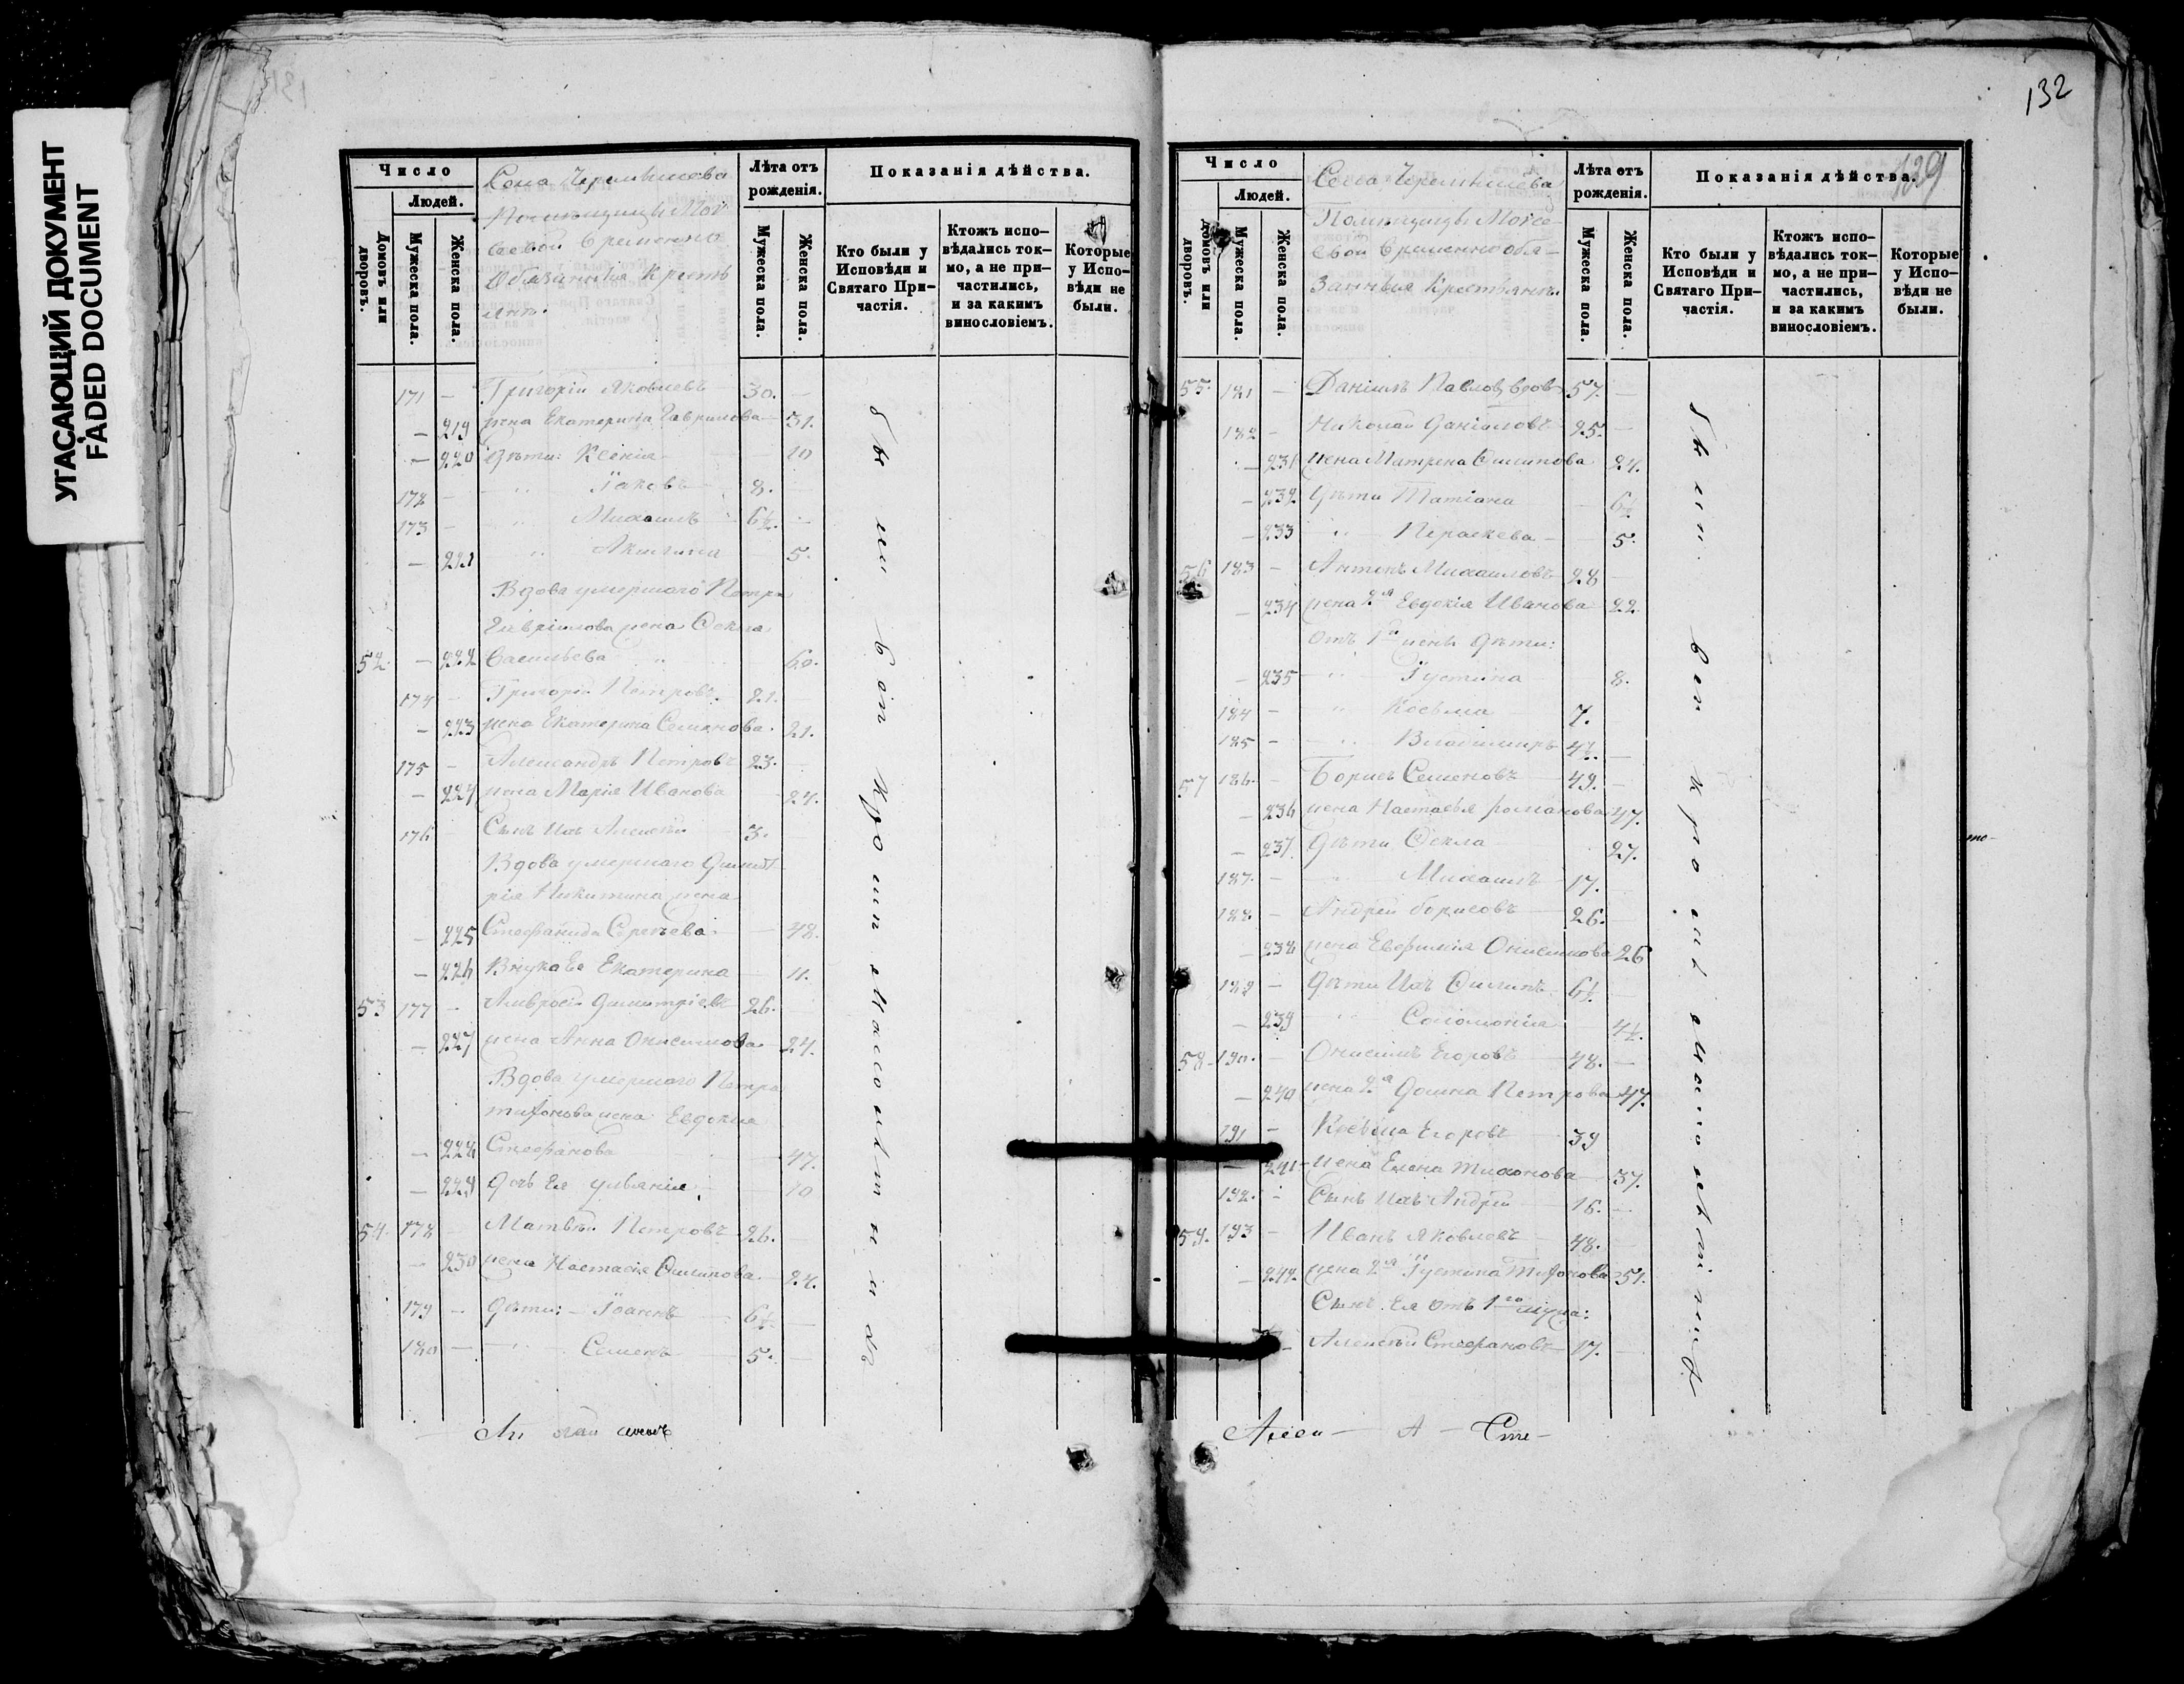 УГАСАЮЩИЙ ДОКУМЕНТ
FADED DOCUMENT
Число
Людей.
Домовъ или дворовъ.
Мужеска пола.
Женска пола.
Села
Помѣщицы
Временно
Обязанныя Крестья
Лѣта отъ рожденія.
Мужеска пола.
Женска пола.
Показанія дѣйства.
Кто были у Исповѣди и Святаго Причастія.
Ктожъ исповѣдались токмо, а не причастились, и за какимъ винословіемъ.
Которые у Исповѣди не были.
171 — Григорій Яковлевъ 30.
— 219 жена Екатерина Гаврилова 31.
— 220 дѣти: Ксенія 10
172 — Іаковъ 8.
173 — Михаилъ 6½.
— 221 Акилина 5.
Вдова умершаго Петра
Гаврилова жена Ѳекла
52. — 222 Васильева 60.
174 — Григорій Петровъ 21.
— 223 жена Екатерина Семенова 21.
175 — Александръ Петровъ 23.
— 224 жена Марія Иванова 24.
176 Сынъ ихъ Алексѣй 3.
Вдова умершаго Димит
рія Никитина жена
— 225 Стефанида Сергѣева 48.
— 226 Внука Ея Екатерина 11.
53 177 — Амвросій Димитріевъ 26.
— 227 жена Анна Онисимова 24.
Вдова умершаго Петра
Тихонова жена Евдокия
— 228 Стефанова 47.
— 229 дочь Ея Ульянія 10
54. 178 Матвѣй Петровъ 26.
— 230 жена Настасія Филипова 24.
179 — дѣти: Іоаннъ 6½.
180 — Семенъ 5.
были вси кромѣ малолѣтнихъ
132
129
Число
Людей.
Домовъ или дворовъ.
Мужеска пола.
Женска пола.
Села
Помѣщицы
Временно обя-
занныя Крестьяне.
Лѣта отъ рожденія.
Мужеска пола.
Женска пола.
Показанія дѣйства.
Кто были у Исповѣди и Святаго Причастія.
Ктожъ исповѣдались токмо, а не причастились, и за какимъ винословіемъ.
Которые у Исповѣди не были.
55. 181 — Даніилъ Павловъ вдовъ 57.
182 — Николай Даніиловъ 25.
— 231 жена Матрена Филипова 24.
— 232 дѣти Татіана 6½
— 233 Параскева 5.
56 183 — Антонъ Михаиловъ 28
— 234 жена 2я Евдокія Иванова 22
Отъ 1й жены дѣти:
— 235 Іустина 8.
184 — Косьма 7.
185 — Владимиръ 4½.
57 186 — Борисъ Семеновъ 49.
236 жена Настасья Романова 47.
— 237 дѣти Ѳекла 27.
187. — Михаилъ 17.
188. — Андрей Борисовъ 26.
— 238 жена Евфимія Онисимова 26
189 — дѣти ихъ Филипъ 6½.
— 239 Соломонія 4½.
58. 190. — Онисимъ Егоровъ 48.
— 240 жена 2я Домна Петрова 47.
191 — Косьма Егоровъ 39
— 241 — жена Елена Тихонова 37.
192. — Сынъ ихъ Андрей 16.
59. 193 — Иванъ Яковлевъ 48.
— 242. жена 2я Іустина Тихонова 51.
Сынъ Ея отъ 1го мужа:
Алексѣй Стефановъ 17.
были вси кромѣ малолѣтнихъ